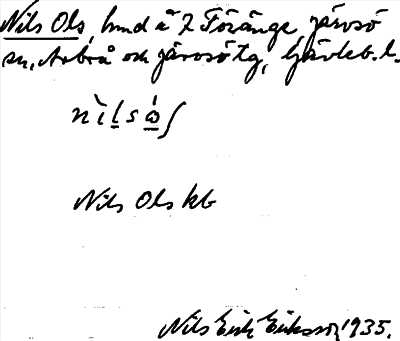 Nils Ols, hmd å 7 Föränge, Järvsö
sn, Arbrå och Järvsö tg, Gävleb. l.
Nils Ols kb
Nils Erik Eriksson 1935.